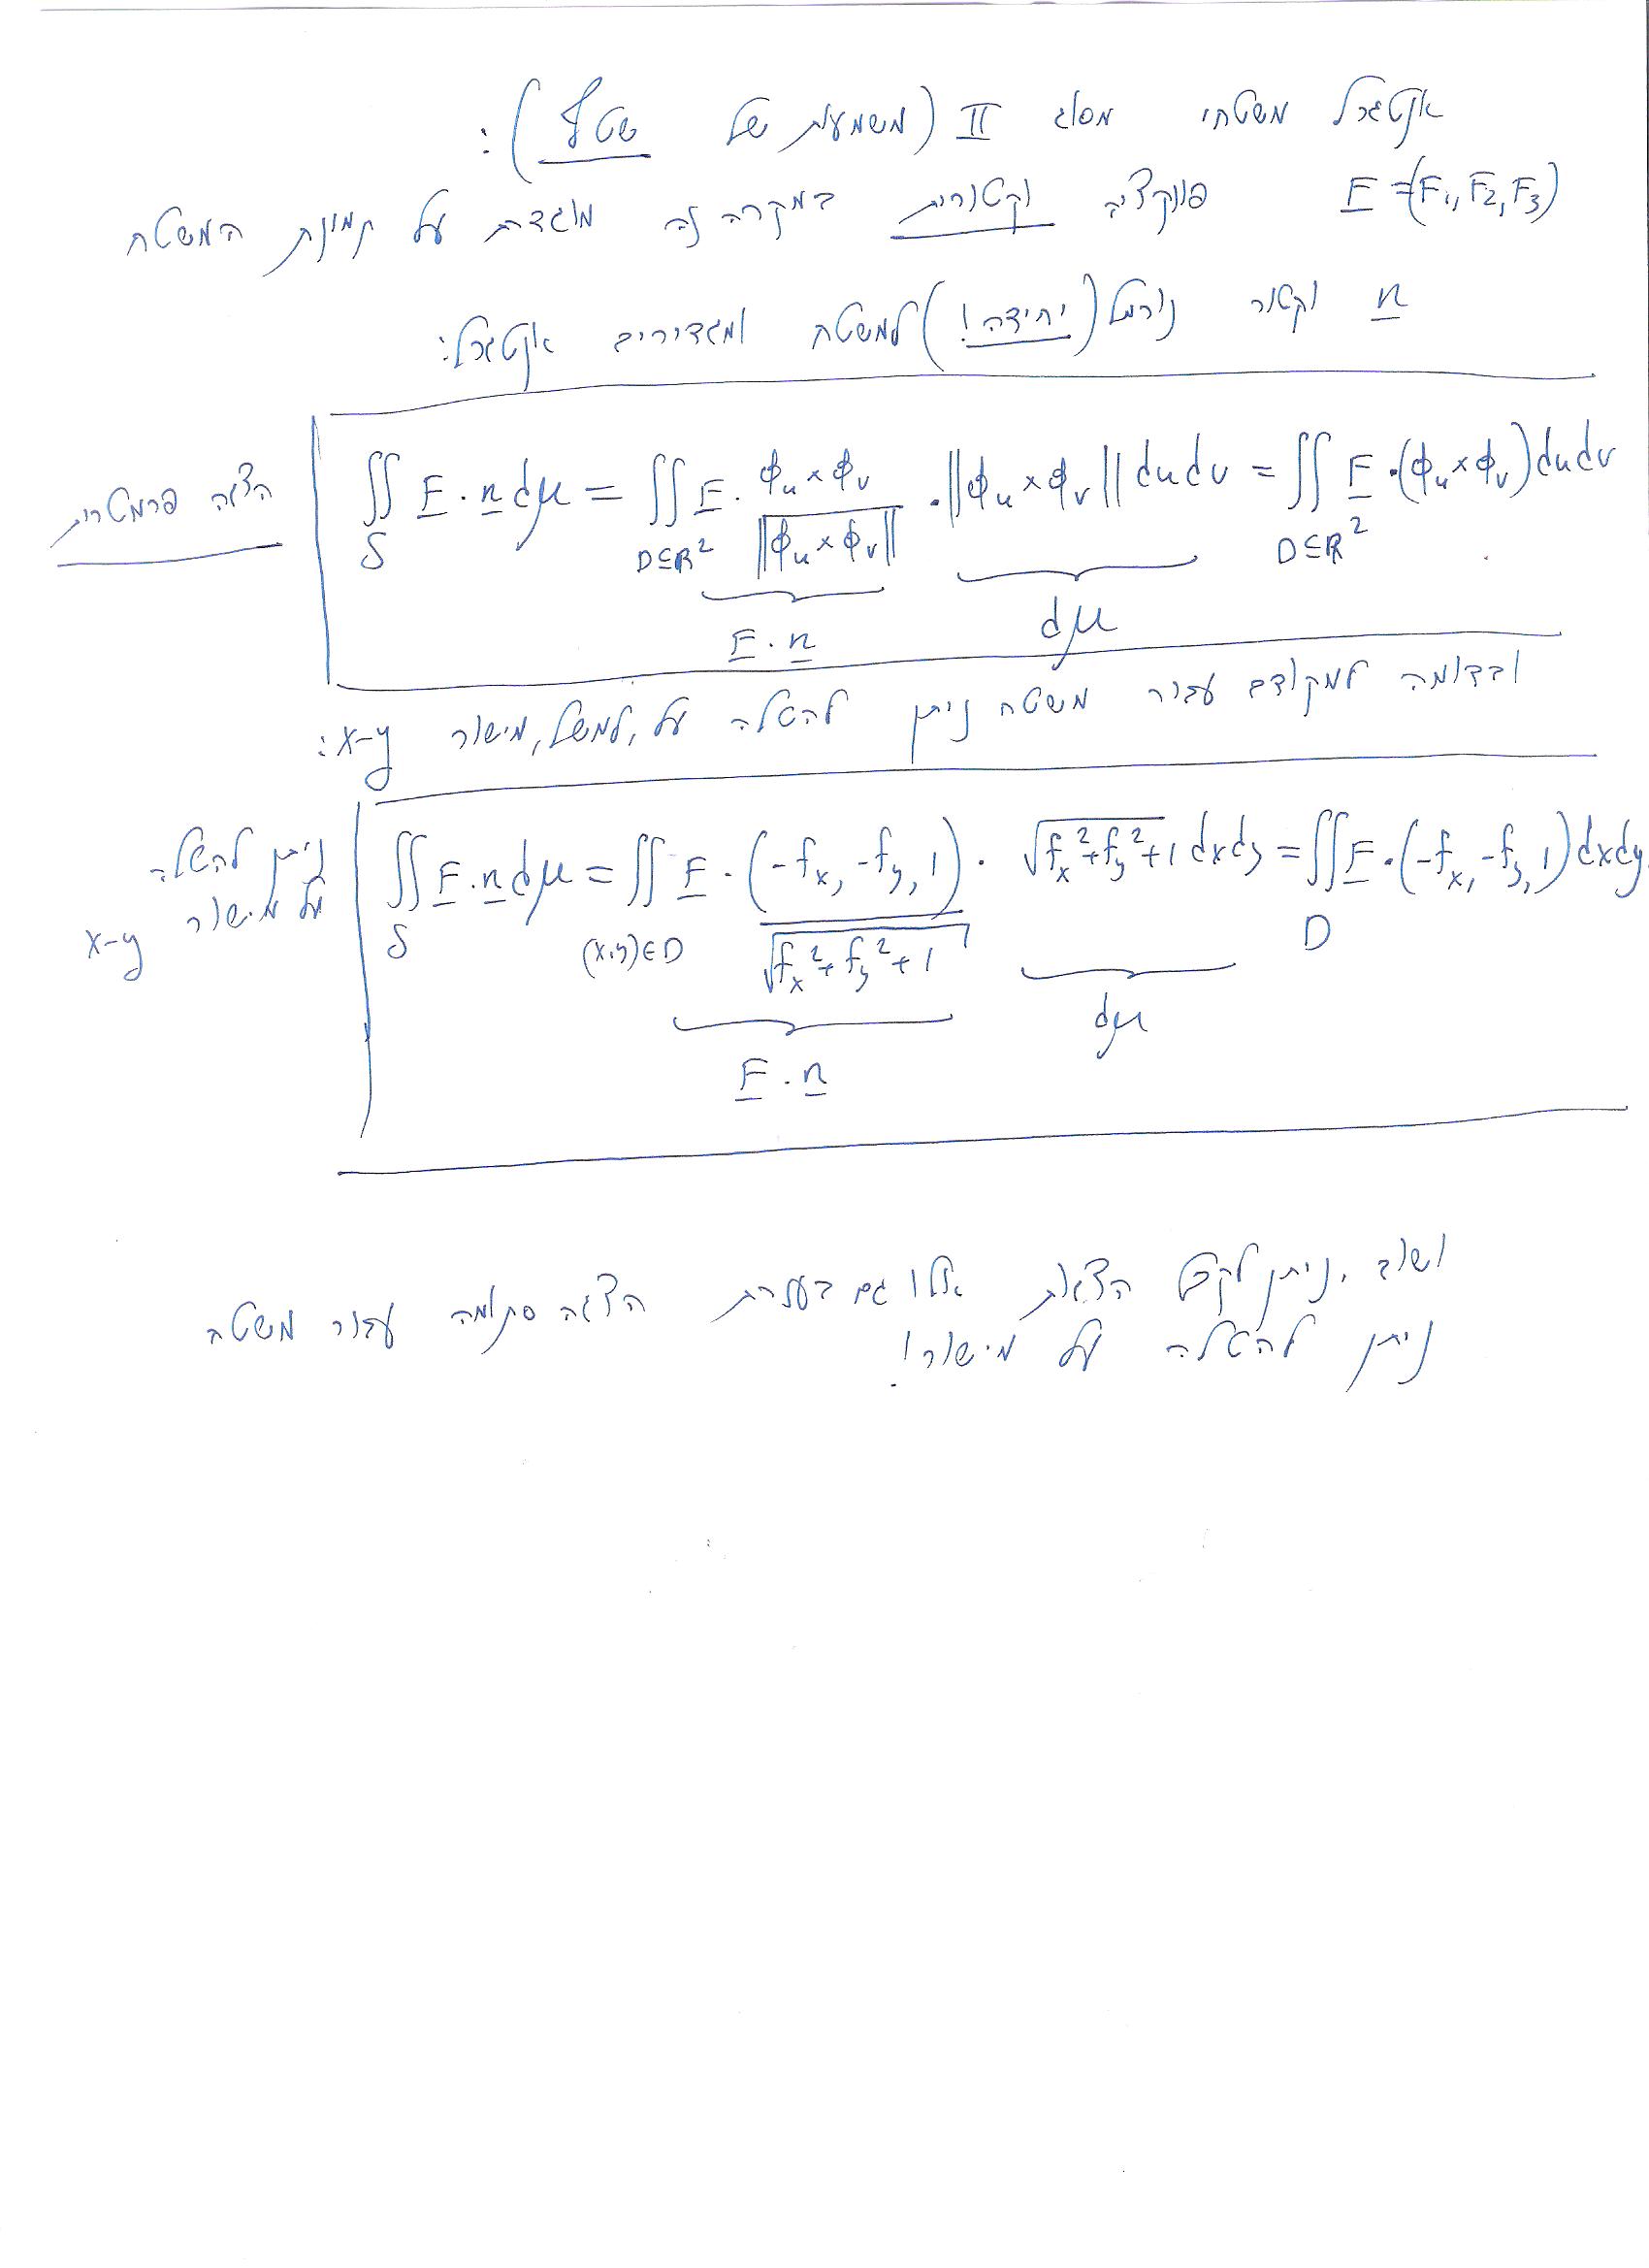 אינטגרל משטחי מסוג II (משמעות של שטף):
F = (F₁, F₂, F₃) פונקציה וקטורית במקרה זה מוגדרת על תמונת המשטח
n וקטור נורמל (יחידה!) למשטח ומגדירים אינטגרל:
הצגה פרמטרית ∬_S F · n dμ = ∬_{D⊆ℝ²} F · (ϕ_u × ϕ_v)/‖ϕ_u × ϕ_v‖ · ‖ϕ_u × ϕ_v‖ du dv = ∬_{D⊆ℝ²} F · (ϕ_u × ϕ_v) du dv
F · n dμ
ובדומה למקודם עבור משטח ניתן להטלה על, למשל, מישור x-y:
ניתן להטלה על מישור x-y ∬_S F · n dμ = ∬_{(x,y)∈D} F · (-f_x, -f_y, 1)/√(f_x² + f_y² + 1) · √(f_x² + f_y² + 1) dx dy = ∬_D F · (-f_x, -f_y, 1) dx dy
F · n dμ
ושוב, ניתן לקבל הצגות אלו גם בעזרת הצגה סתומה עבור משטח
ניתן להטלה על מישור!